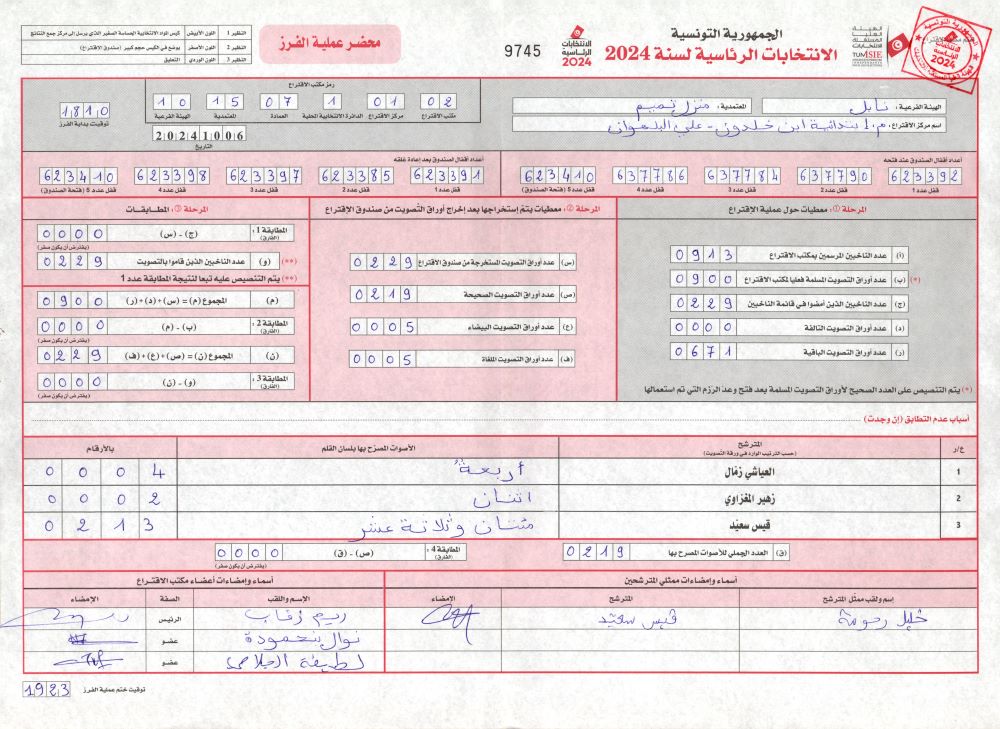 الجمهورية التونسية
الانتخابات الرئاسية لسنة 2024
9745
الانتخابات الرئاسية 2024
محضر عملية الفرز
النظير 1 اللون الأبيض كيس المواد الانتخابية الحساسة الصغير الذي يرسل الى مركز جمع النتائج
النظير 2 اللون الأصفر يوضع في الكيس حجم كبير (صندوق الاقتراع)
النظير 3 اللون الوردي التعليق
الهيئة الفرعية : نابل
المعتمدية : منزل تميم
اسم مركز الاقتراع : م.ا بتدائية ابن خلدون - علي البلهوان
رمز مكتب الاقتراع
02 01 1 07 15 10
مكتب الاقتراع مركز الاقتراع الدائرة الانتخابية المحلية العمادة المعتمدية الهيئة الفرعية
20241006
التاريخ
1810
توقيت بداية الفرز
أعداد أقفال الصندوق عند فتحه
623392 637790 637784 637786 623410
قفل عدد 1 قفل عدد 2 قفل عدد 3 قفل عدد 4 قفل عدد 5 (فتحة الصندوق)
أعداد أقفال الصندوق بعد إعادة غلقه
623391 623385 623397 623398 623410
قفل عدد 1 قفل عدد 2 قفل عدد 3 قفل عدد 4 قفل عدد 5 (فتحة الصندوق)
المرحلة ①: معطيات حول عملية الاقتراع
(أ) عدد الناخبين المرسمين بمكتب الاقتراع 0913
(*) (ب) عدد أوراق التصويت المسلمة فعليا لمكتب الاقتراع 0900
(ج) عدد الناخبين الذين أمضوا في قائمة الناخبين 0229
(د) عدد أوراق التصويت التالفة 0000
(ر) عدد أوراق التصويت الباقية 0671
(*) يتم التنصيص على العدد الصحيح لأوراق التصويت المسلمة بعد فتح وعد الرزم التي تم استعمالها
المرحلة ②: معطيات يتم إستخراجها بعد إخراج أوراق التصويت من صندوق الاقتراع
(س) عدد أوراق التصويت المستخرجة من صندوق الاقتراع 0229
(ص) عدد أوراق التصويت الصحيحة 0219
(ع) عدد أوراق التصويت البيضاء 0005
(ف) عدد أوراق التصويت الملغاة 0005
المرحلة ③: المطابقات
المطابقة 1: (الفارق) (ج) - (س) 0000
(يفترض أن يكون صفر)
(**) (و) عدد الناخبين الذين قاموا بالتصويت 0229
(**) يتم التنصيص عليه تبعا لنتيجة المطابقة عدد 1
(م) المجموع (م) = (س)+(د)+(ر) 0900
المطابقة 2: (الفارق) (ب) - (م) 0000
(ن) المجموع (ن) = (ص)+(ع)+(ف) 0229
المطابقة 3: (الفارق) (و) - (ن) 0000
(يفترض أن يكون صفر)
أسباب عدم التطابق (إن وجدت)
ع/ر المترشح (حسب الترتيب الوارد في ورقة التصويت) الأصوات المصرح بها بلسان القلم بالأرقام
1 العياشي زمّال أربعة 0004
2 زهير المغزاوي اثنان 0002
3 قيس سعيّد مئتان وثلاثة عشر 0213
(ق) العدد الجملي للأصوات المصرح بها 0219
المطابقة 4: (الفارق) (ص) - (ق) 0000
(يفترض أن يكون صفر)
أسماء وإمضاءات ممثلي المترشحين
إسم ولقب ممثل المترشح المترشح الإمضاء
خليل رحومة قيس سعيّد
أسماء وإمضاءات أعضاء مكتب الاقتراع
الإسم واللقب الصفة الإمضاء
ريم زقاب الرئيس
نوال بنحمودة عضو
لطيفة الجلاصي عضو
توقيت ختم عملية الفرز 1923